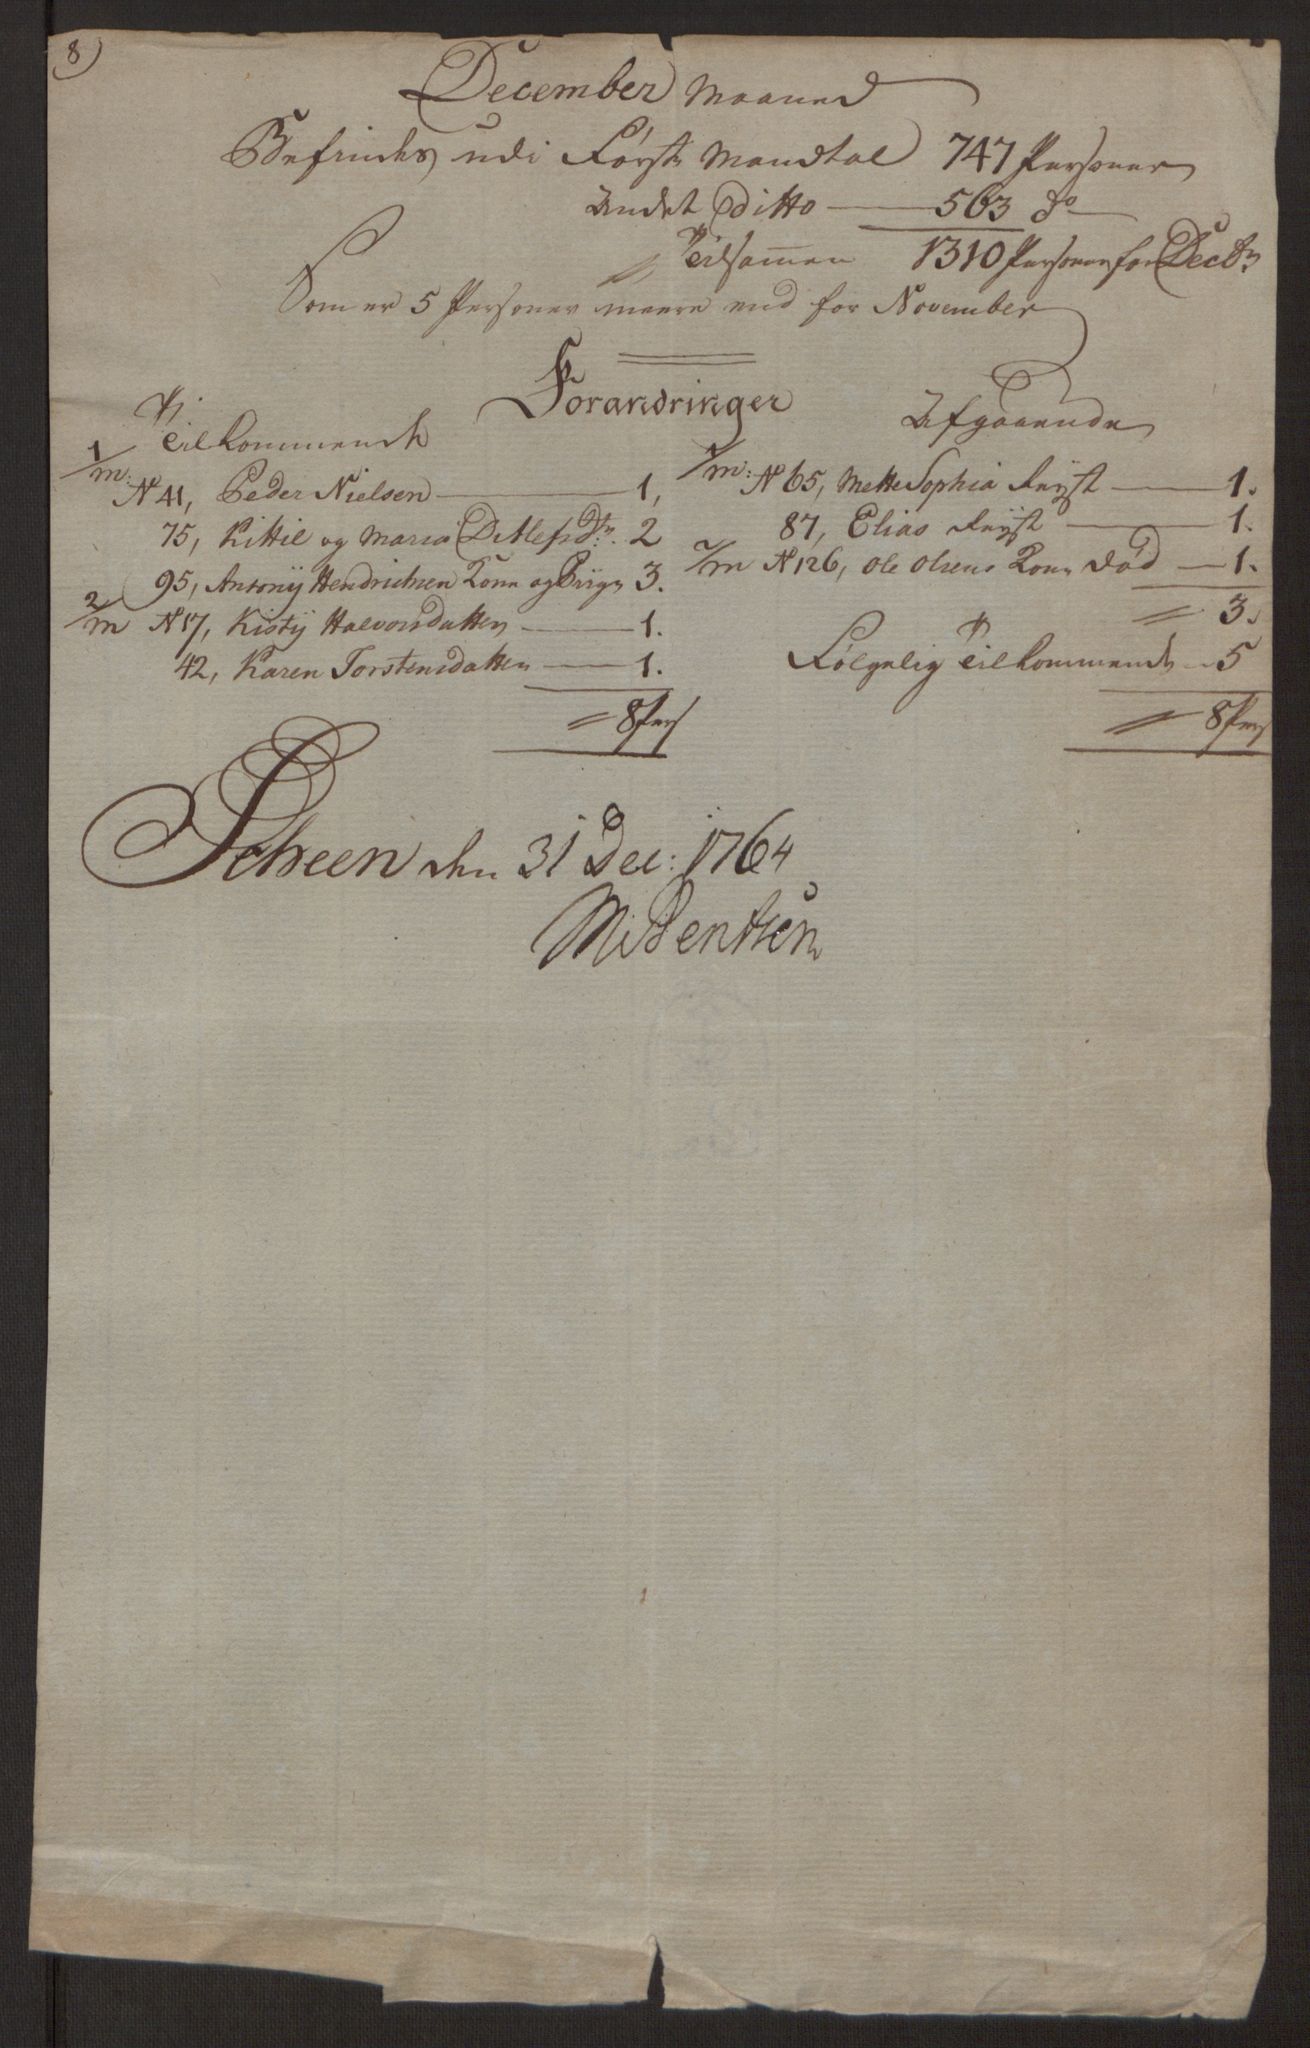 8)
December Maaned
Befindes udi Første Mandtal 747 Personer
Andet Ditto 563 do
Tilsamen 1310 Personer for Decbr
Som er 5 Personer meere end for November
Forandringer
Tilkommende
1/m: N 41, Peder Nielsen 1,
75, Kittil og Maria Ditlefsdtr. 2
95, Antonij Hendrichsen Kone og Piige 3.
2/m N 17, Kisty Halvorsdatter 1.
42, Karen Torstensdatter 1.
8 Pers
Afgaaende
1/m: N 65, Mette Sophia Rejst 1.
87, Elias Rejst 1.
2/m N 126, Ole Olsens Kone død 1.
3.
Følgelig Tilkommende 5
8 Pers
Scheen den 31 Dec: 1764
M: Bentsen